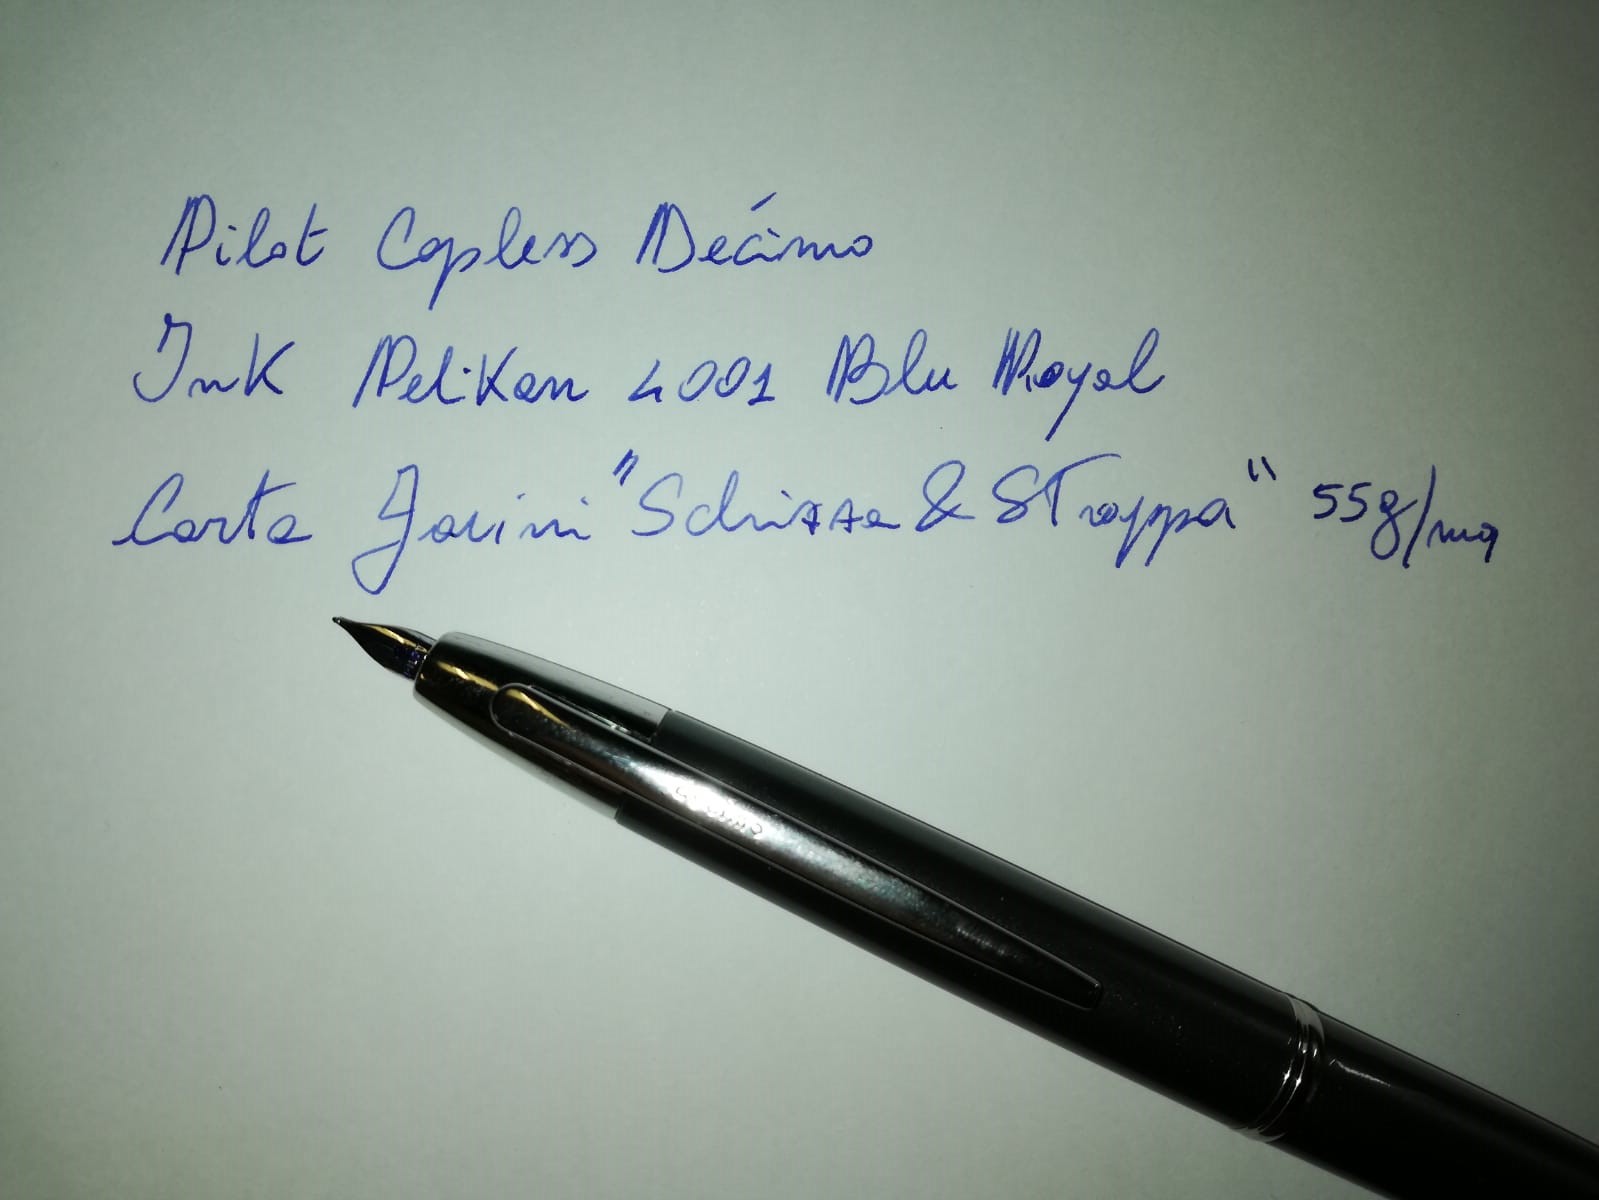 Pilot Capless Décimo
Ink Pelikan 4001 Blu Royal
Carta Favini "Schizza & Strappa" 55g/mq